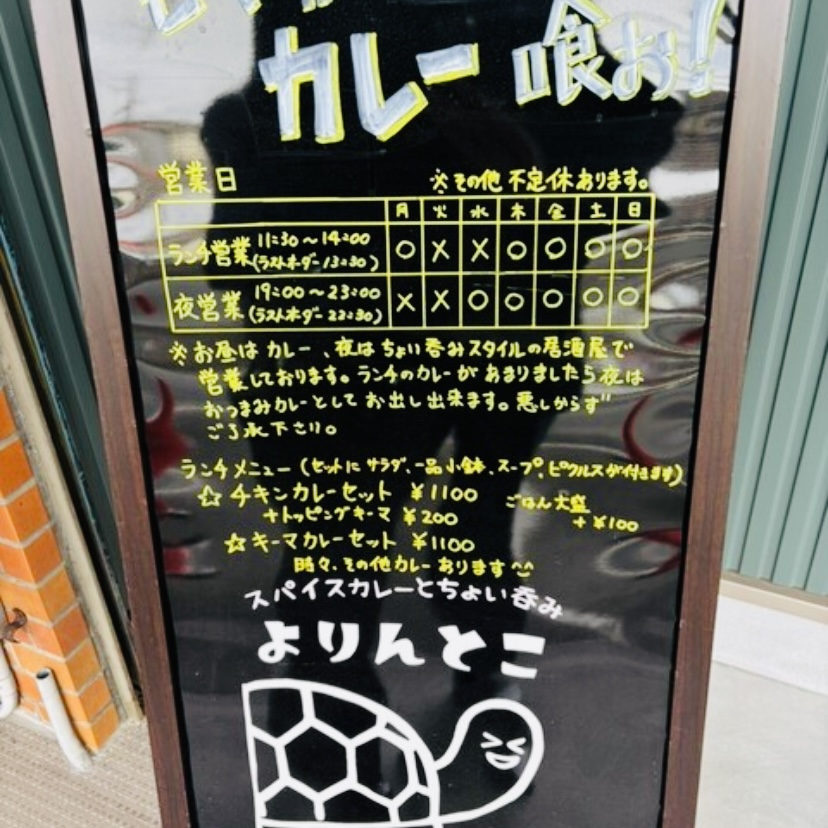 カレー 喰お!
営業日 ※その他 不定休あります。
月 火 水 木 金 土 日
ランチ営業 11:30~14:00 (ラストオーダー13:30) ○ × × ○ ○ ○ ○
夜営業 19:00~23:00 (ラストオーダー22:30) × × ○ ○ ○ ○ ○
※お昼は カレー、夜はちょい呑みスタイルの居酒屋で
営業しております。ランチのカレーが あまりましたら夜は
おつまみカレーとして お出し出来ます。悪しからず
ご了承下さい。
ランチメニュー(セットに サラダ、一品小鉢、スープ、ピクルスが付きます)
☆ チキンカレーセット ¥1100 ごはん大盛
+トッピングキーマ ¥200 +¥100
☆ キーマカレーセット ¥1100
時々、その他カレーあります^^
スパイスカレーとちょい呑み
よりんとこ